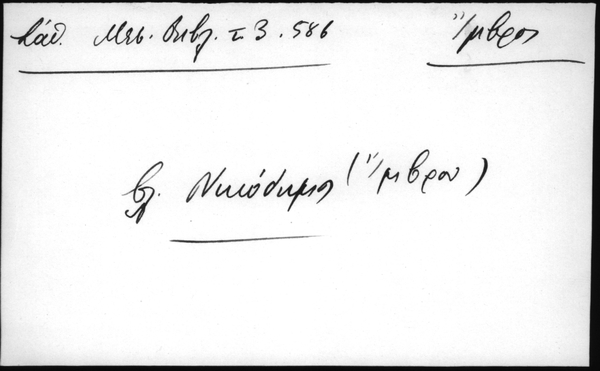 Σάθ. Μεσ. Βιβλ. Γ 3. 586 Ἴμβρος
βλ. Νικόδημος (Ἴμβρου)